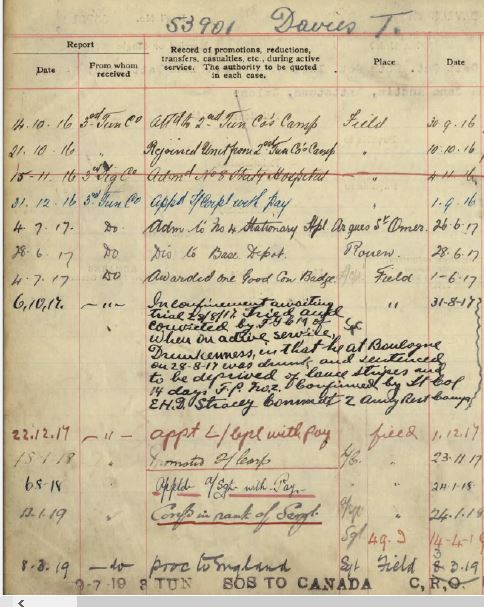 53901 Davies T.
Report
Record of promotions, reductions,
transfers, casualties, etc., during active
service. The authority to be quoted
in each case.
Place
Date
Date
From whom
received
14.10.16 3rd Tun Co Att'd to 2nd Tun Co's Camp Field 30.9.16
21.10.16 " Rejoined Unit from 2nd Tun Co's Camp " 10.10.16
15-11-16 Adm'd No 8 Hospital " 4.11.16
31.12.16 3rd Tun Co App'd Corpl with pay 1.9.16
4.7.17. Do Adm to No 4 Stationary Hpl Arques St Omer. 26.6.17
28.6.17 Do Dis to Base Depot. Rouen. 28.6.17
4.7.17 Do Awarded one Good Con Badge Field 1-6-17
6.10.17. —"— In confinement awaiting " 31-8-17
trial 29/8/17. Tried and
convicted by F.G.C.M of
when on active service,
Drunkenness, in that he at Boulogne
on 28-8-17 was drunk and sentenced
to be deprived of lance stripes and
14 days F.P. No.2. Confirmed by Lt Col
E.H.D. Stracey Commdt 2 Army Rest Camp
22.12.17 —"— appt L/Cpl with pay field 1.12.17
18-1-18 " Promoted Corp " 23.11.17
6.8.18 " Appt'd A/Sgt with Pay " 24.1.18
13.1.19 " in rank of Sergt. " 24.1.18
Sgt 14-4-19
8-3.19 —do proc to England Sgt Field 8 3.19
9-7-19 3 TUN SOS TO CANADA C,R,O.